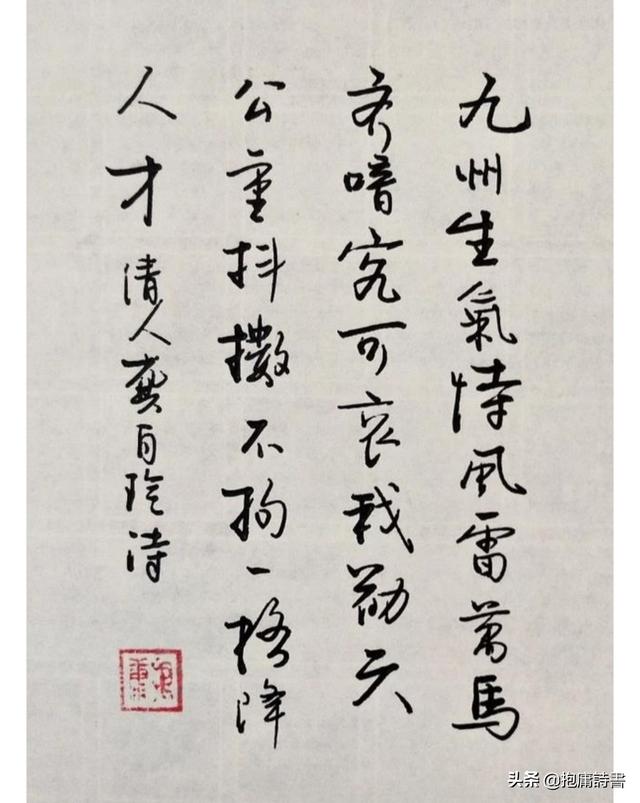 九州生氣恃風雷萬馬
齐喑究可哀我勸天
公重抖擻不拘一格降
人才
清人龔自珍詩
头条 @抱庸詩書